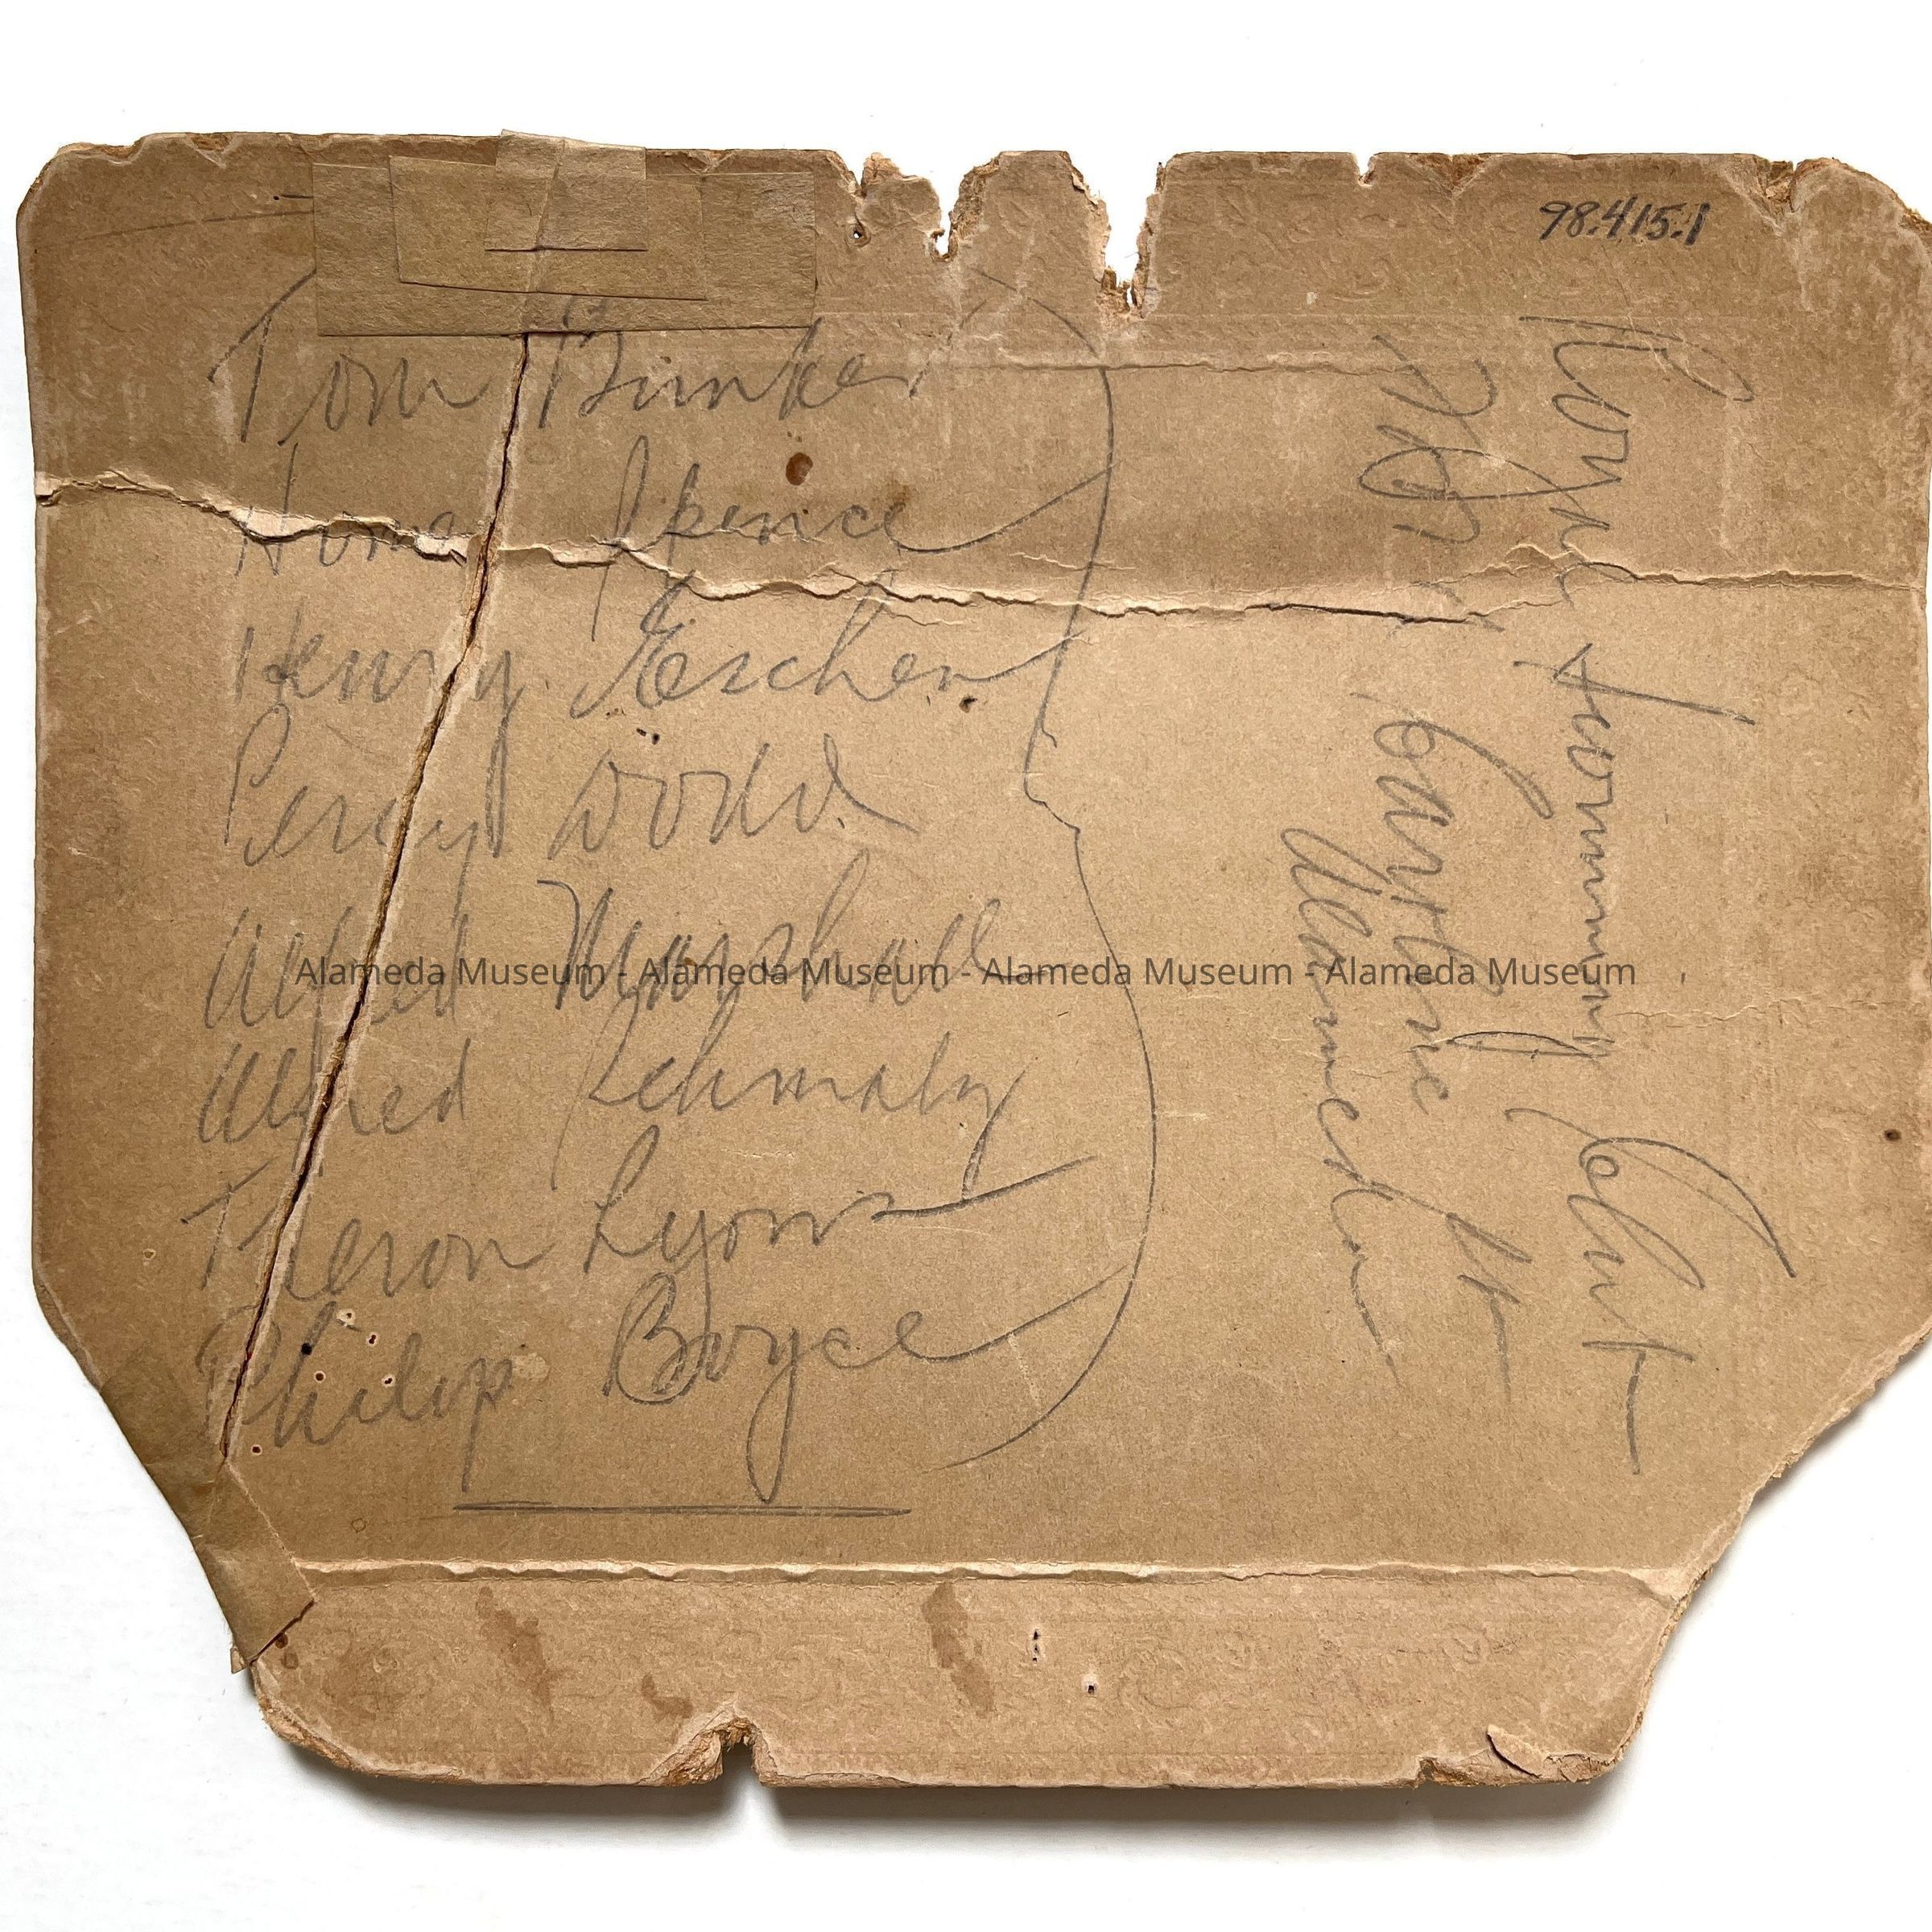 98.415.1
Tom Bunker
Homer Spence
Henry Eschen
Percy Wood
Alfred Marshall
Alfred Schmaly
Theron Lyons
Philip Boyce
Royal Tommy Club
Alameda
Alameda Museum - Alameda Museum - Alameda Museum - Alameda Museum